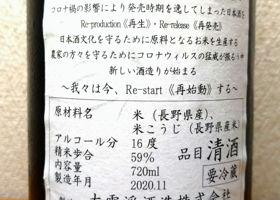 コロナ禍の影響により発売時期を逸してしまった日本酒を
Re-production《再生》・Re-release《再発売》
日本酒文化を守るために原料となるお米を生産する
農家の方々を守るためにコロナウィルスの猛威が振るう中
新しい酒造りが始まる
～我々は今、Re-start《再始動》する～
原材料名 米（長野県産）、
米こうじ（長野県産米）
アルコール分 16度
精米歩合 59% 品目 清酒
内容量 720ml 要冷蔵
製造年月 2020.11
大雪渓酒造株式会社